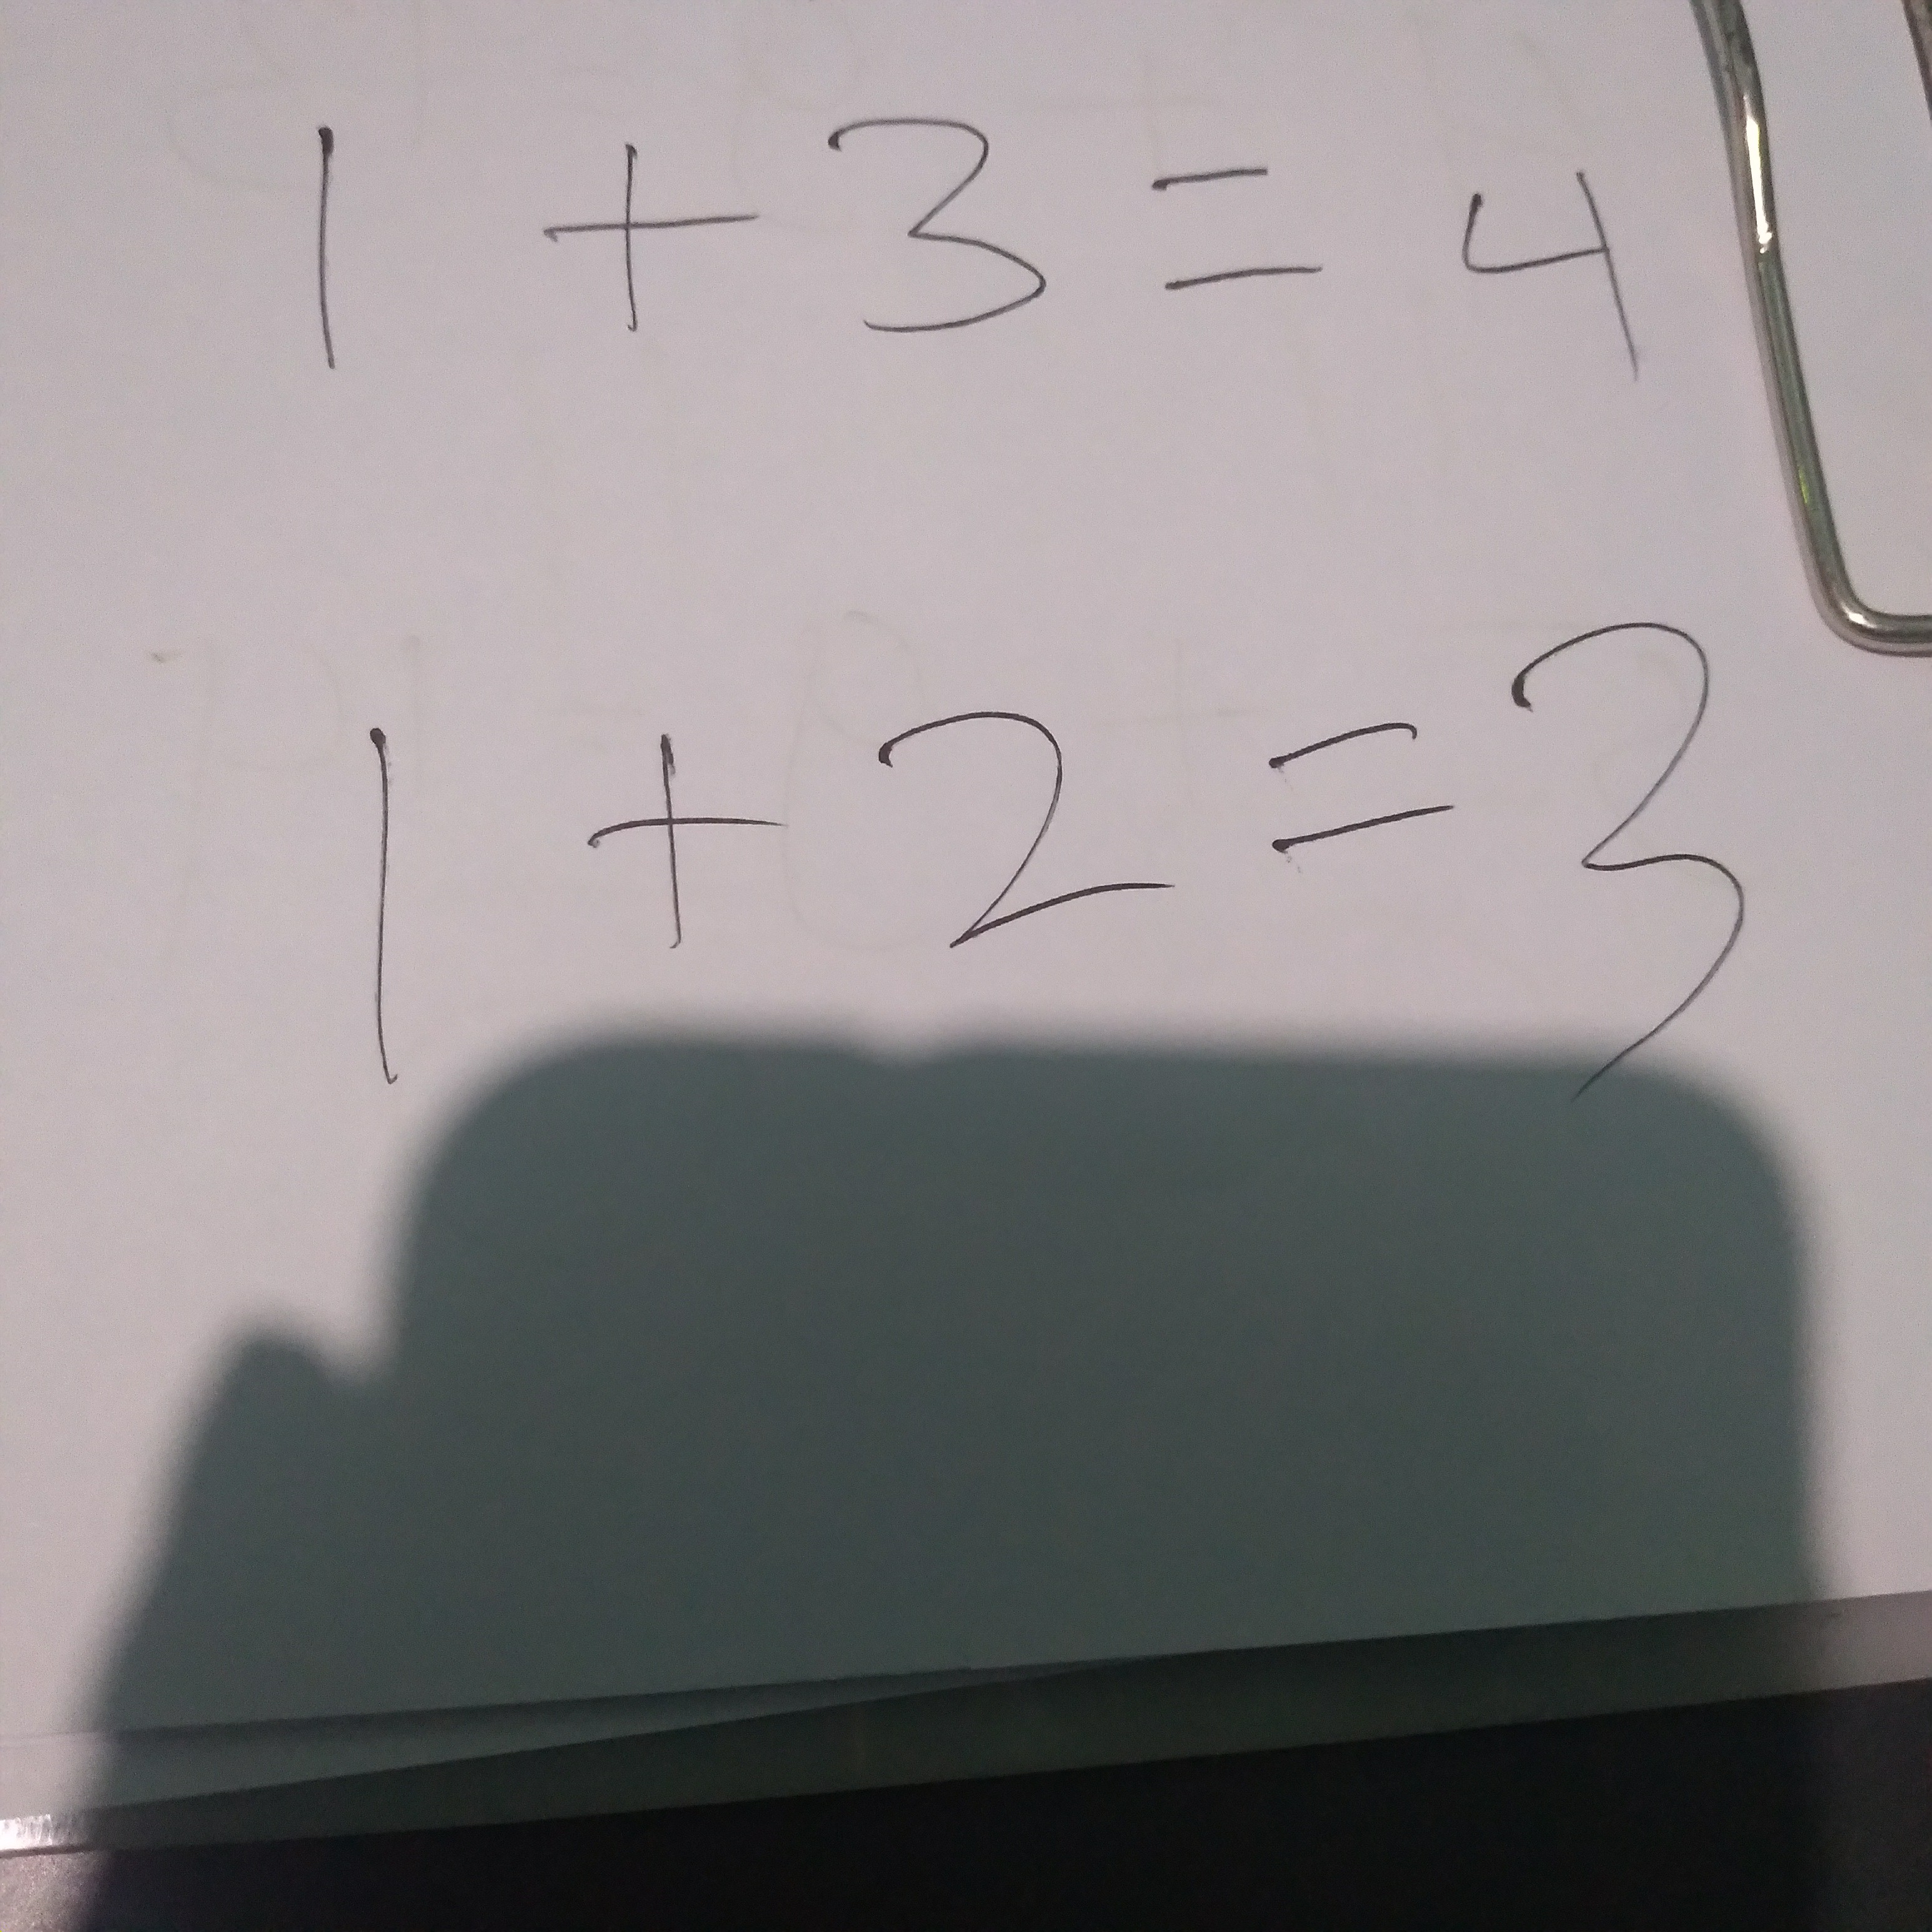 1 + 3 = 4
1 + 2 = 3